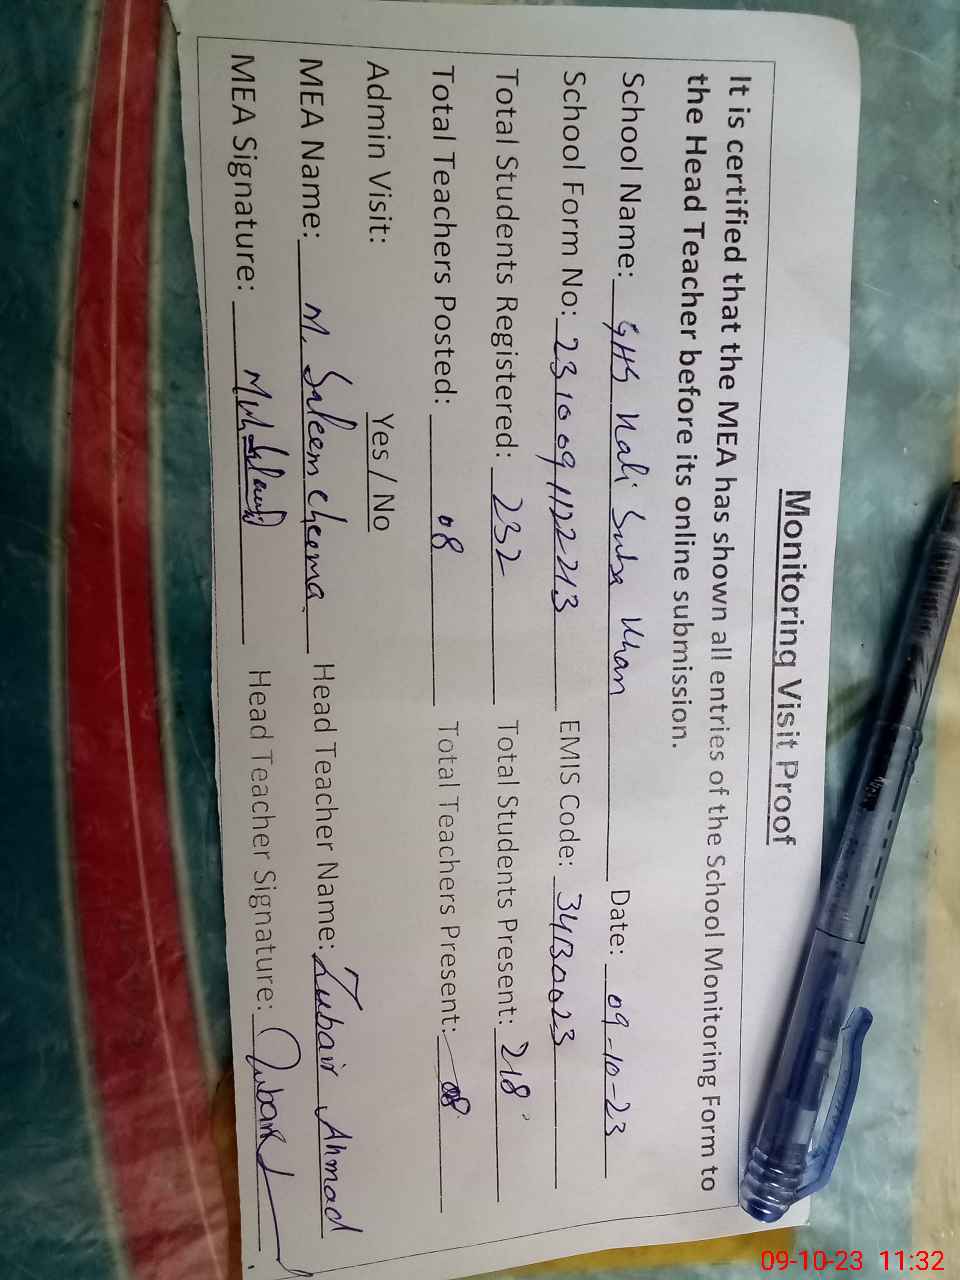 Monitoring Visit Proof
It is certified that the MEA has shown all entries of the School Monitoring Form to
the Head Teacher before its online submission.
School Name: GHS Kali Suba Khan Date: 09-10-23
School Form No: 231009112213 EMIS Code: 34130023
Total Students Registered: 232 Total Students Present: 218
Total Teachers Posted: 08 Total Teachers Present: 08
Admin Visit: Yes / No
MEA Name: M. Saleem Cheema Head Teacher Name: Zubair Ahmad
MEA Signature: Head Teacher Signature:
09-10-23 11:32